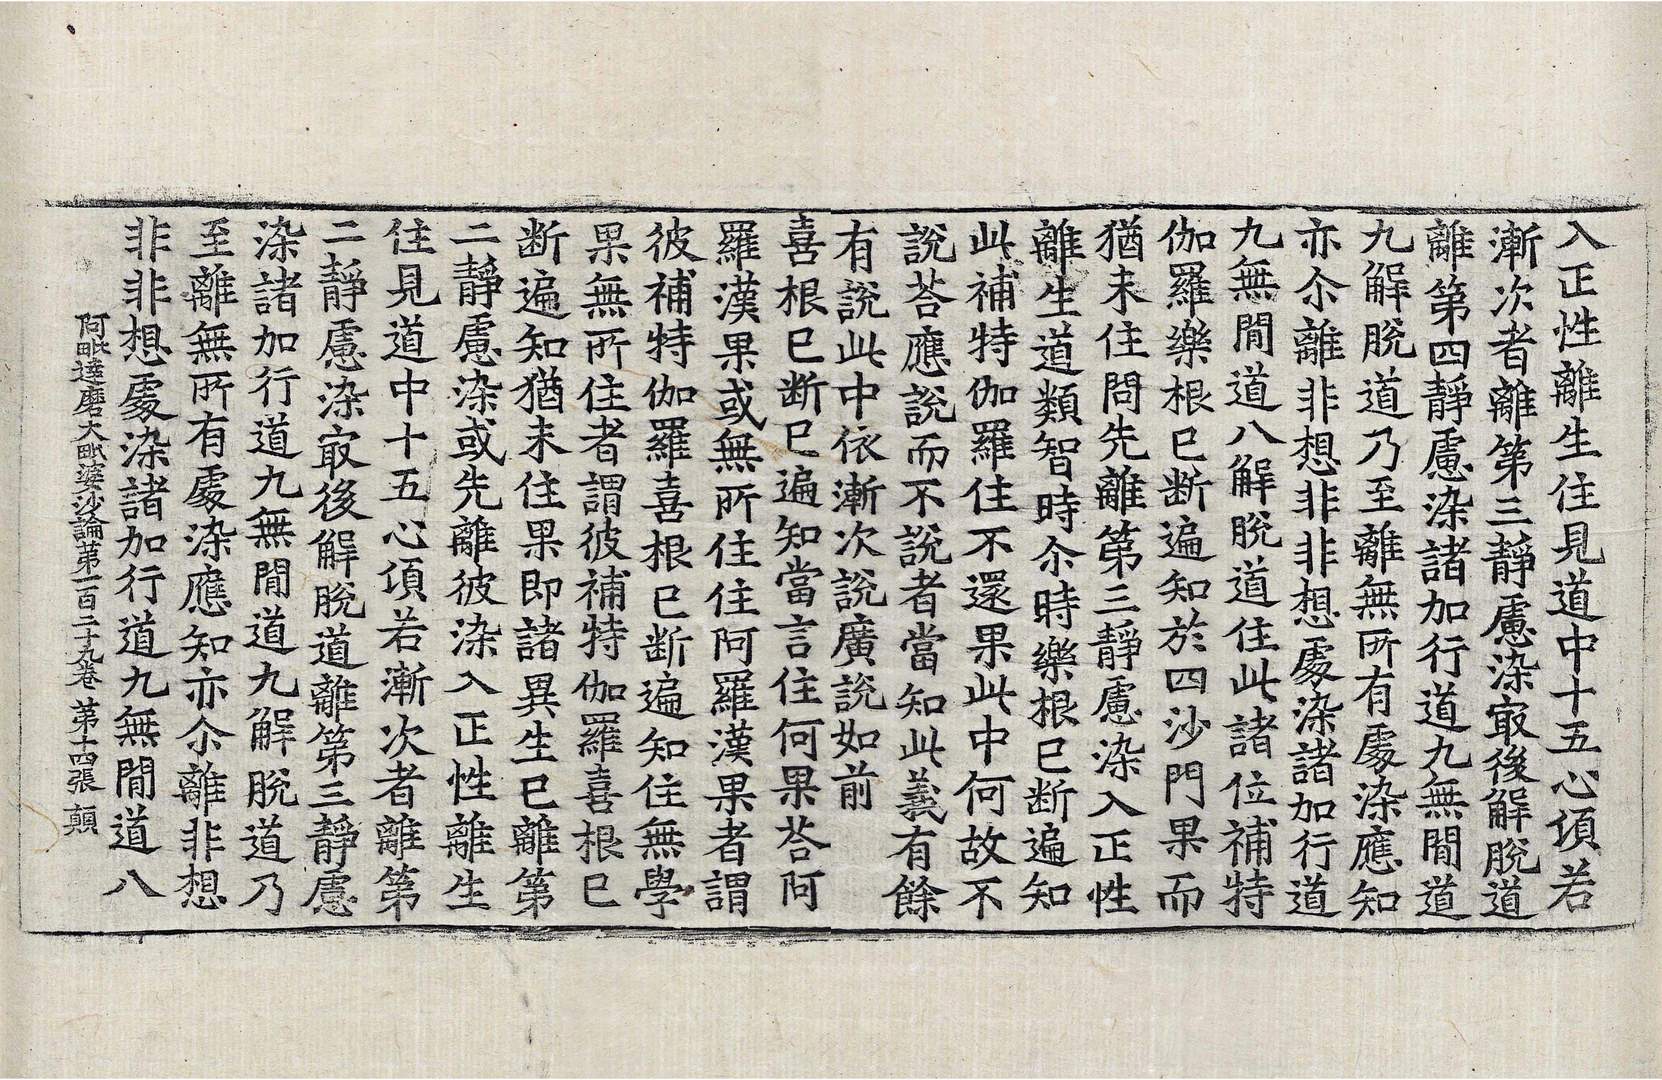 入正性離生住見道中十五心頃若
漸次者離第三靜慮染㝡後解脫道
離第四靜慮染諸加行道九無閒道
九解脫道乃至離無所有處染應知
亦尒離非想非非想處染諸加行道
九無閒道八解脫道住此諸位補特
伽羅樂根已断遍知於四沙門果而
猶未住問先離第三靜慮染入正性
離生道類智時尒時樂根已断遍知
此補特伽羅住不還果此中何故不
說荅應說而不說者當知此義有餘
有說此中依漸次說廣說如前
喜根已断已遍知當言住何果荅阿
羅漢果或無所住住阿羅漢果者謂
彼補特伽羅喜根已断遍知住無學
果無所住者謂彼補特伽羅喜根已
断遍知猶未住果即諸異生已離第
二靜慮染或先離彼染入正性離生
住見道中十五心頃若漸次者離第
二靜慮染㝡後解脫道離第三靜慮
染諸加行道九無閒道九解脫道乃
至離無所有處染應知亦尒離非想
非非想處染諸加行道九無閒道八
阿毗達磨大毗婆沙論第一百二十九卷 第十四張 顛